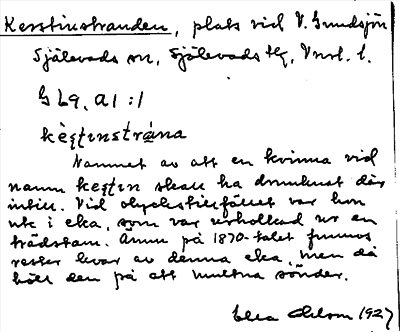 Kerstinstranden, plats vid V. Gundsjön
Själevads sn, Själevads tg, Vnrl. l.
G L9, a 1 :1
kèʂtinstràna
Namnet av att en kvinna vid
namn keʂtin skall ha drunknat där
intill. Vid olyckstillfället var hon
ute i eka, som var urholkad ur en
trädstam. Ännu på 1870-talet funnos
rester kvar av denna eka, men då
höll den på att multna sönder.
Ella Ohlson 1927